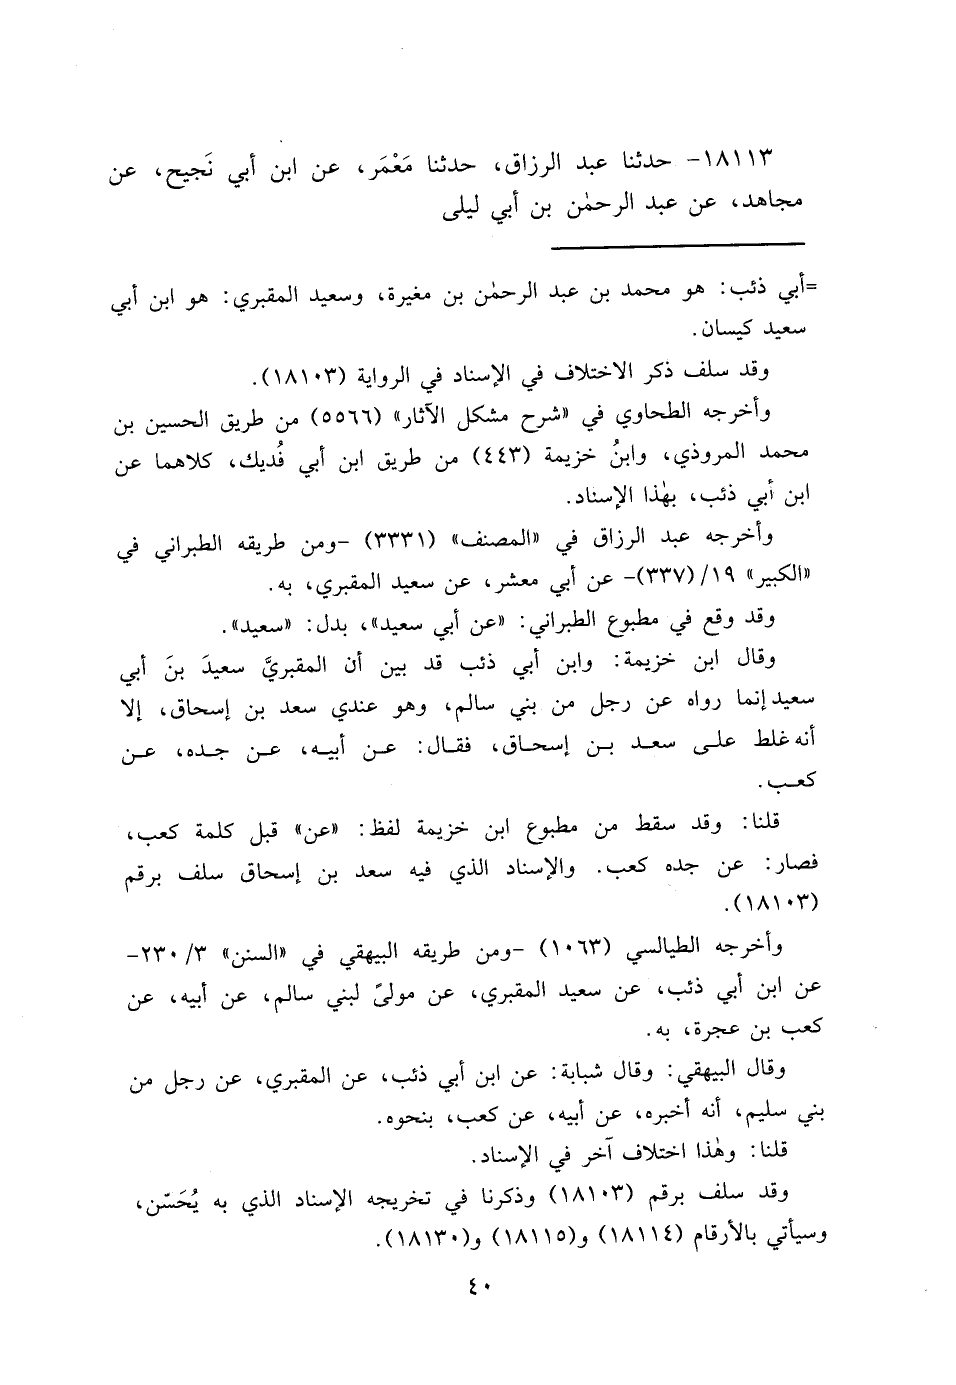 ١٨١١٣- حدثنا عبد الرزاق، حدثنا مَعْمَر، عن ابن أبي نَجيح، عن
مجاهد، عن عبد الرحمٰن بن أبي ليلى
=أبي ذئب: هو محمد بن عبد الرحمٰن بن مغيرة، وسعيد المقبري: هو ابن أبي
سعيد كيسان.
وقد سلف ذكر الاختلاف في الإسناد في الرواية (١٨١٠٣).
وأخرجه الطحاوي في «شرح مشكل الآثار» (٥٥٦٦) من طريق الحسين بن
محمد المروذي، وابنُ خزيمة (٤٤٣) من طريق ابن أبي فُديك، كلاهما عن
ابن أبي ذئب، بهٰذا الإسناد.
وأخرجه عبد الرزاق في «المصنف» (٣٣٣١) -ومن طريقه الطبراني في
«الكبير» ١٩/ (٣٣٧)- عن أبي معشر، عن سعيد المقبري، به.
وقد وقع في مطبوع الطبراني: «عن أبي سعيد»، بدل: «سعيد».
وقال ابن خزيمة: وابن أبي ذئب قد بين أن المقبريَّ سعيدَ بنَ أبي
سعيد إنما رواه عن رجل من بني سالم، وهو عندي سعد بن إسحاق، إلا
أنه غلط على سعد بن إسحاق، فقال: عن أبيه، عن جده، عن
كعب.
قلنا: وقد سقط من مطبوع ابن خزيمة لفظ: «عن» قبل كلمة كعب،
فصار: عن جده كعب. والإسناد الذي فيه سعد بن إسحاق سلف برقم
(١٨١٠٣).
وأخرجه الطيالسي (١٠٦٣) -ومن طريقه البيهقي في «السنن» ٣/ ٢٣٠-
عن ابن أبي ذئب، عن سعيد المقبري، عن مولىً لبني سالم، عن أبيه، عن
كعب بن عجرة، به.
وقال البيهقي: وقال شبابة: عن ابن أبي ذئب، عن المقبري، عن رجل من
بني سليم، أنه أخبره، عن أبيه، عن كعب، بنحوه.
قلنا: وهٰذا اختلاف آخر في الإسناد.
وقد سلف برقم (١٨١٠٣) وذكرنا في تخريجه الإسناد الذي به يُحَسّن،
وسيأتي بالأرقام (١٨١١٤) و(١٨١١٥) و(١٨١٣٠).
٤٠